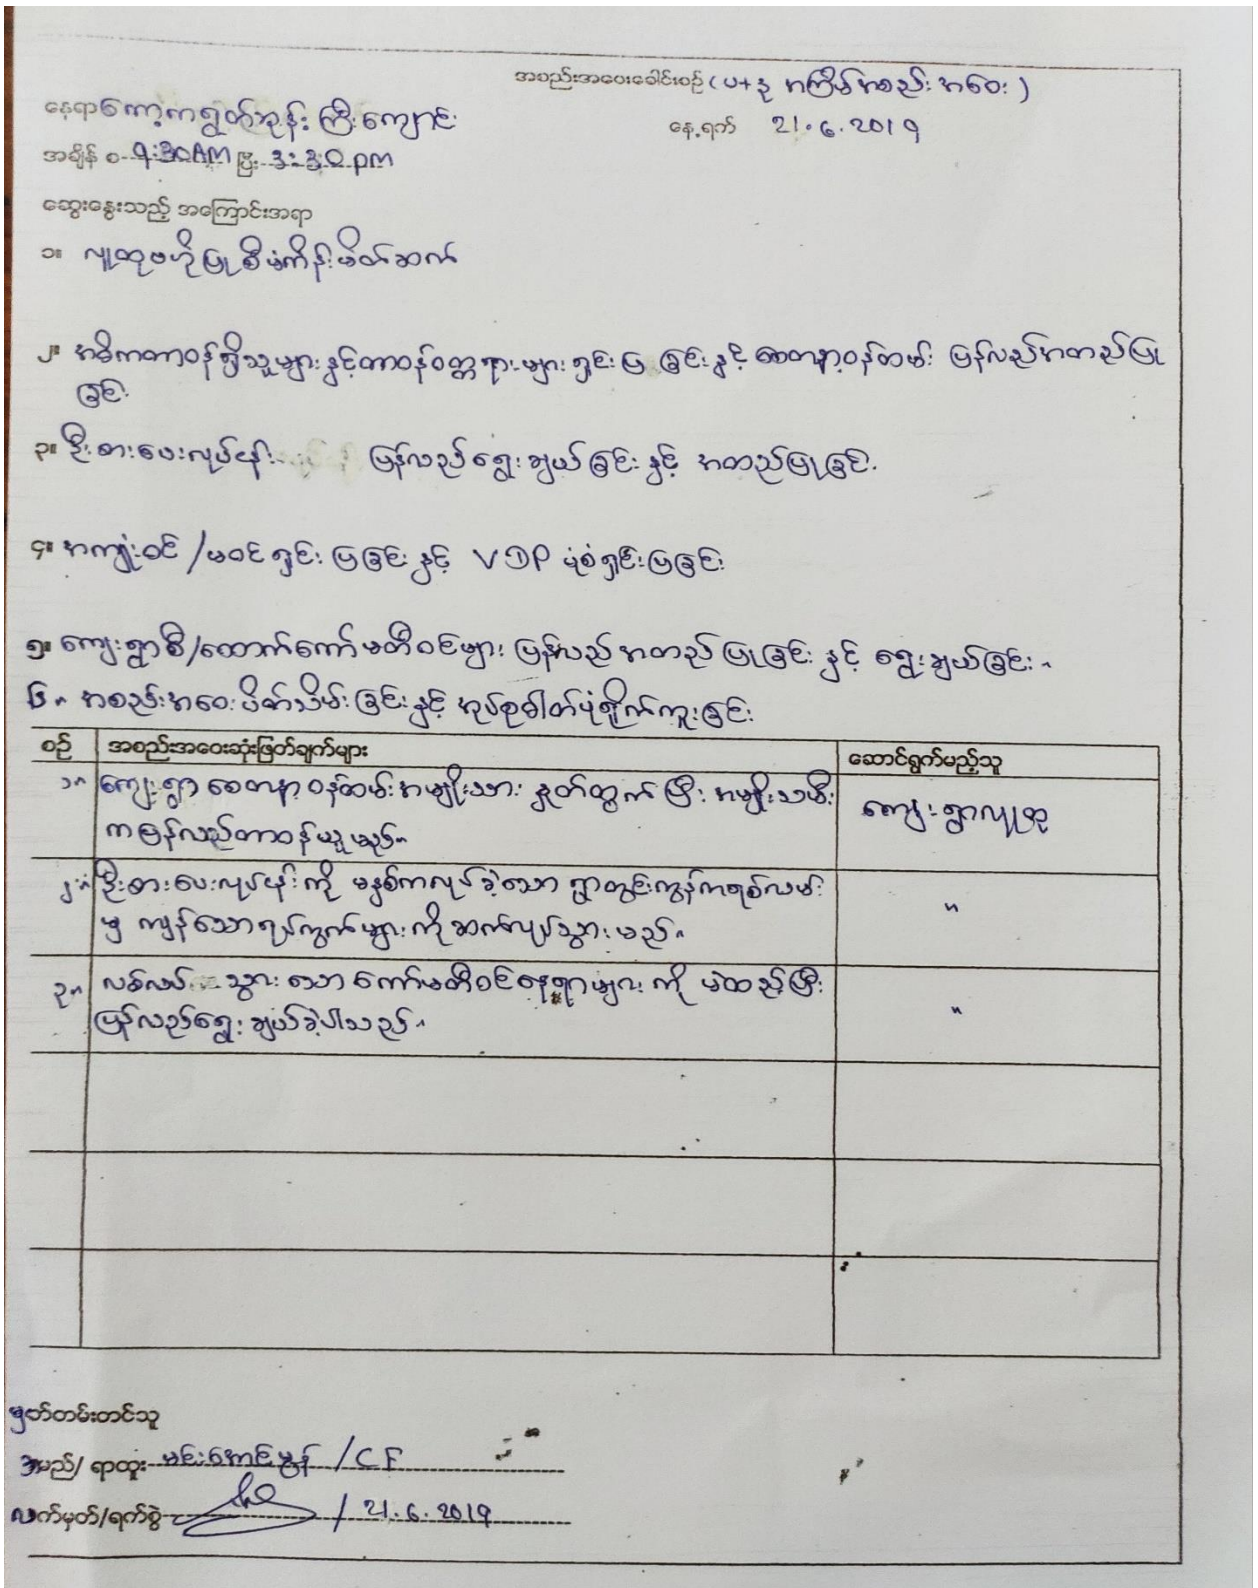 အစည်းအဝေးခေါင်းစဉ် (ပ+ဒု အကြိမ်အစည်းအဝေး)
နေရာ ကော့ကရွတ်ဘုန်းကြီးကျောင်း
နေ့ရက် 21.6.2019
အချိန် စ-9:30AM ပြီး 3:30pm
ဆွေးနွေးသည့် အကြောင်းအရာ
၁။ လူထုဗဟိုပြုစီမံကိန်းမိတ်ဆက်
၂။ အဓိကတာဝန်ရှိသူများနှင့်တာဝန်ဝတ္တရားများရှင်းပြခြင်းနှင့် စေတနာ့ဝန်ထမ်း ပြန်လည်အတည်ပြု
ခြင်း
၃။ ဦးစားပေးလုပ်ငန်း ပြန်လည်ရွေးချယ်ခြင်းနှင့် အတည်ပြုခြင်း
၄။ အကျုံးဝင်/မဝင်ရှင်းပြခြင်းနှင့် VDP ပုံစံရှင်းပြခြင်း
၅။ ကျေးရွာစီ/ထောက်ကော်မတီဝင်များ ပြန်လည်အတည်ပြုခြင်း နှင့် ရွေးချယ်ခြင်း။
၆။ အစည်းအဝေးပိတ်သိမ်းခြင်းနှင့် အုပ်စုဓါတ်ပုံရိုက်ကူးခြင်း
စဉ် အစည်းအဝေးဆုံးဖြတ်ချက်များ ဆောင်ရွက်မည့်သူ
၁။ ကျေးရွာစေတနာ့ဝန်ထမ်းအမျိုးသား နှုတ်ထွက်ပြီး အမျိုးသမီး ကျေးရွာလူထု
က ပြန်လည်တာဝန်ယူမည်။
၂။ ဦးစားပေးလုပ်ငန်းကို မနှစ်ကလုပ်ခဲ့သော ရွာတွင်းကွန်ကရစ်လမ်း "
မှ ကျန်သောရပ်ကွက်များကိုဆက်လုပ်သွားမည်။
၃။ လစ်လပ်သွားသောကော်မတီဝင်နေရာများကို မဲထည့်ပြီး "
ပြန်လည်ရွေးချယ်ခဲ့ပါသည်။
မှတ်တမ်းတင်သူ
အမည်/ ရာထူး- မင်းအောင်မွန် /CF
လက်မှတ်/ရက်စွဲ / 21.6.2019